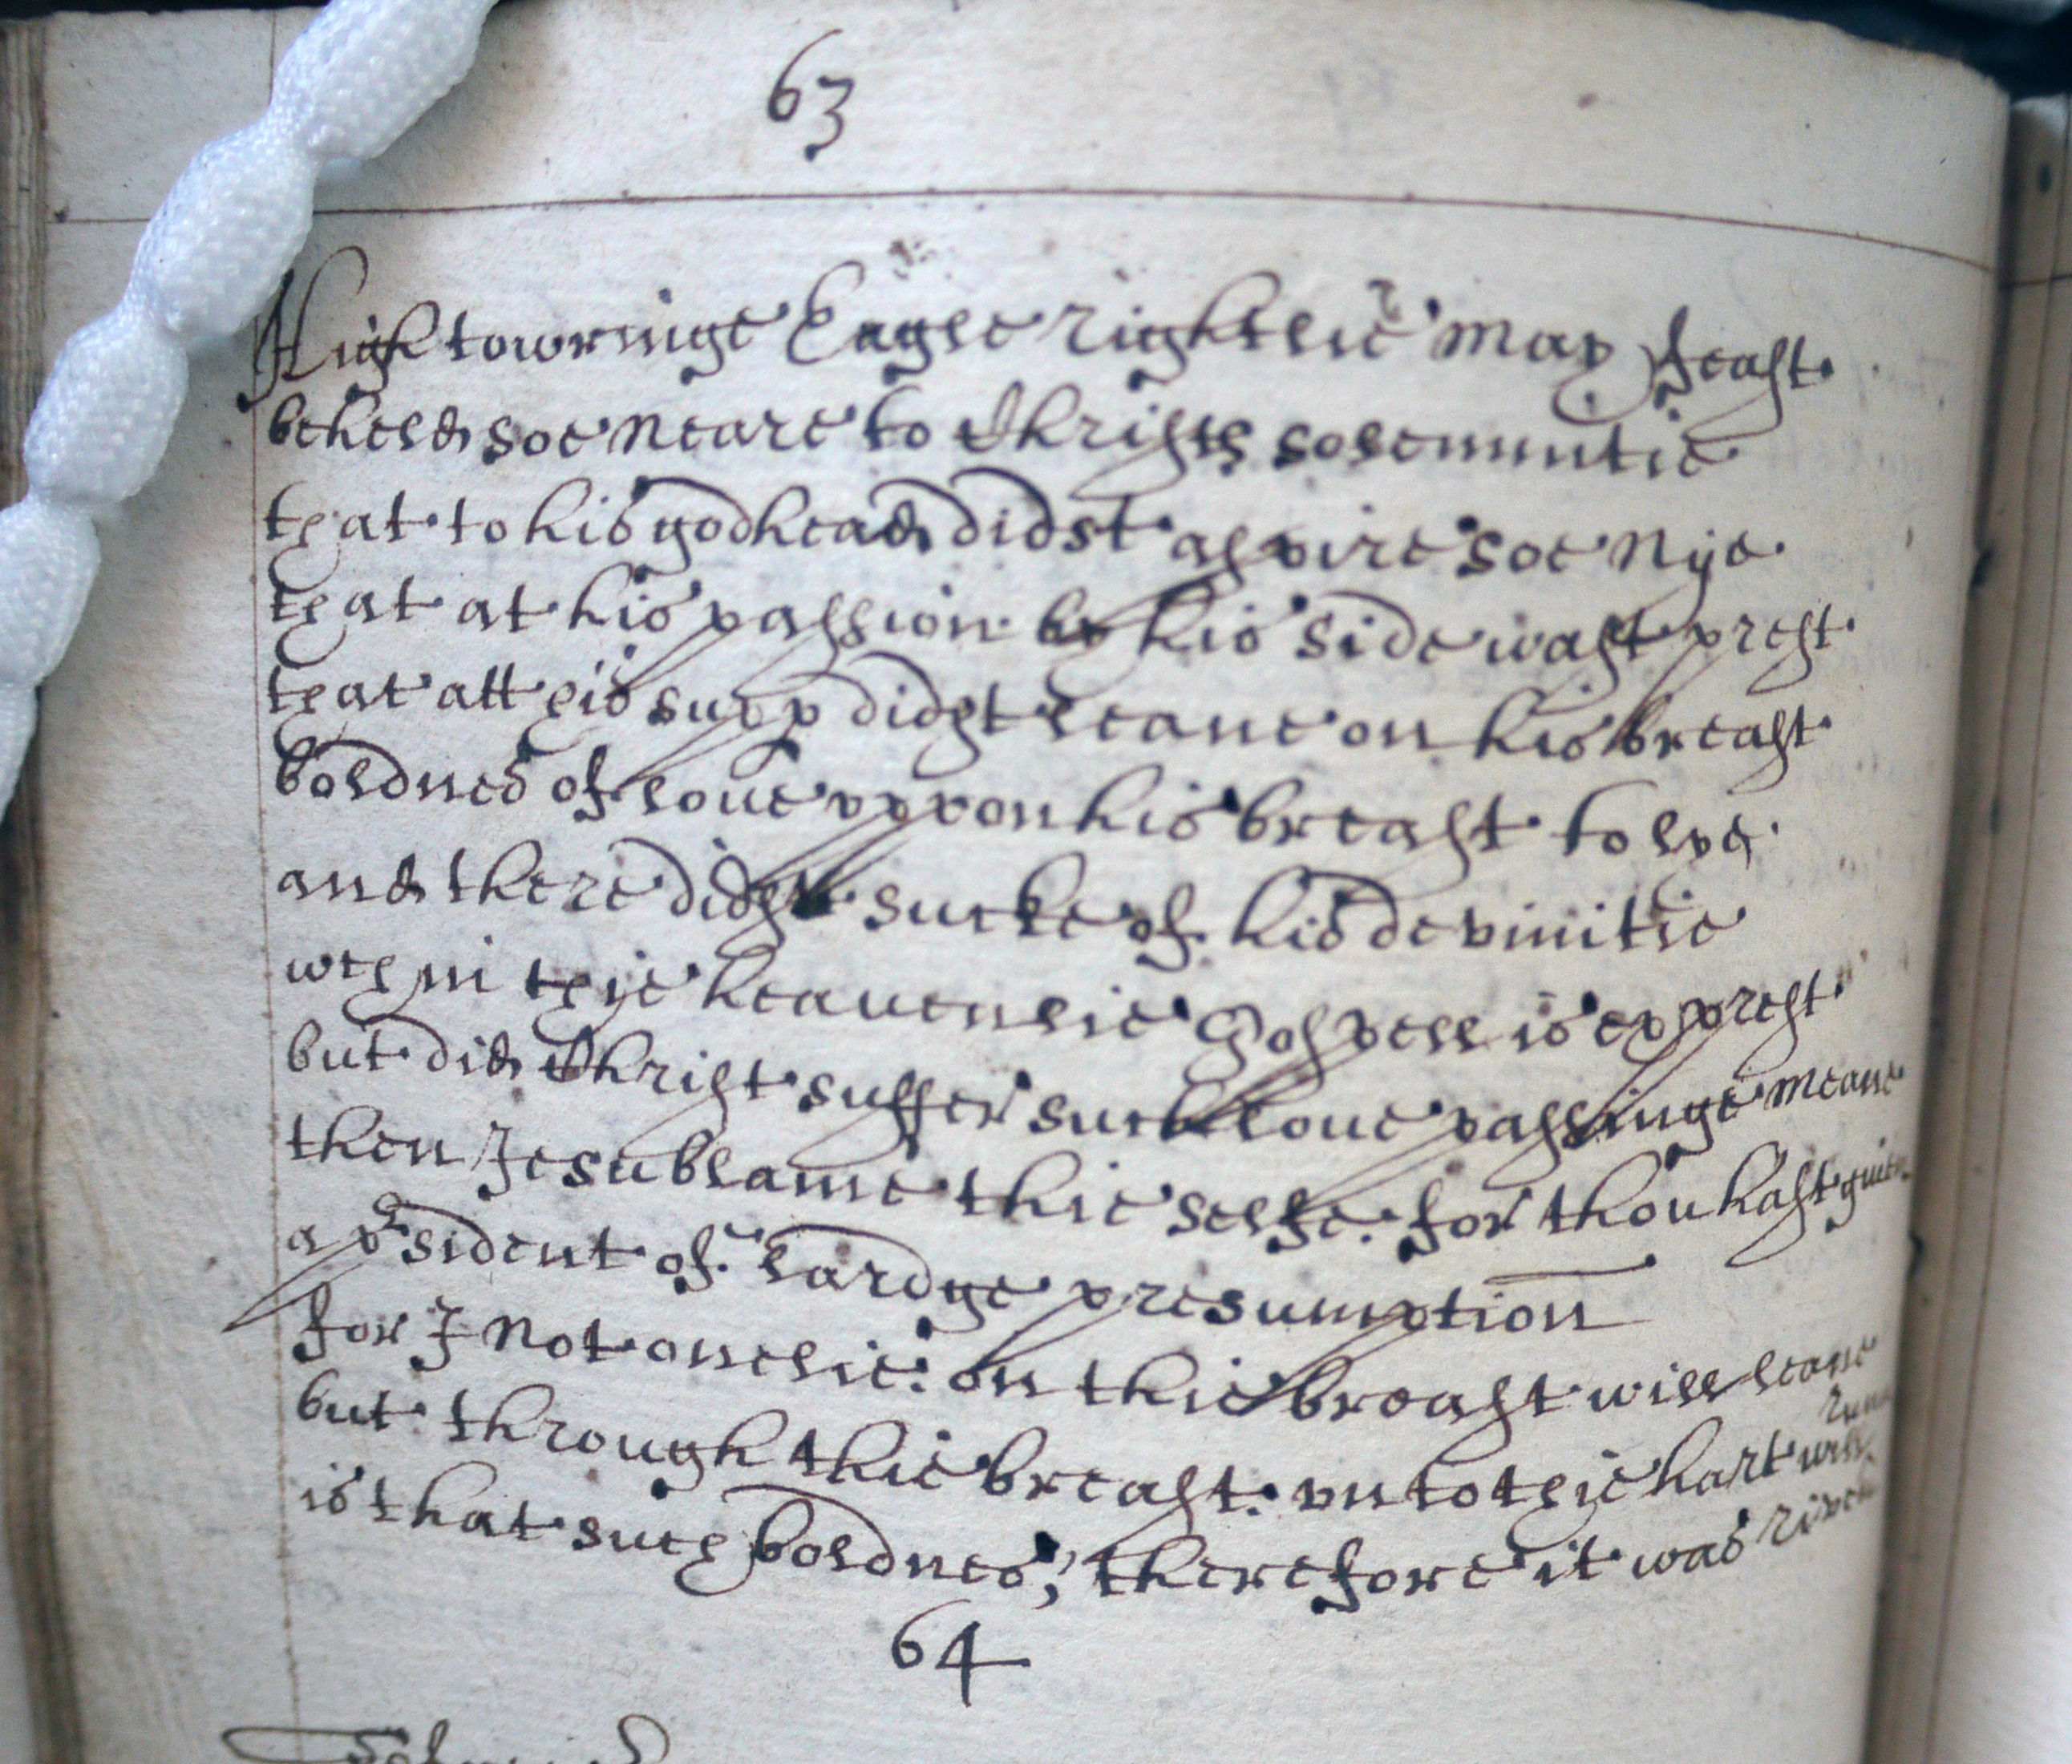 63
High towringe Eagle rightlie may thy feast
beheld soe neare to Christs solemnitie
that to his godhead didst aspire soe nye
that at his passion by his side wast prest
that att his supp didst leane on his breast
boldnes of loue vppon his breast to lye
and there didst sucke of his devinitie
wch in thie heauenlie Gospell is exprest
but did Christ suffer such loue passinge meane
then Jesu blame thie selfe. for thou hast giuen
a psident of lardge presumption
for I not onelie: on thie breast will leane
but through thie breast: vnto thie hart will runn
is that such boldnes; therefore it was riven
64